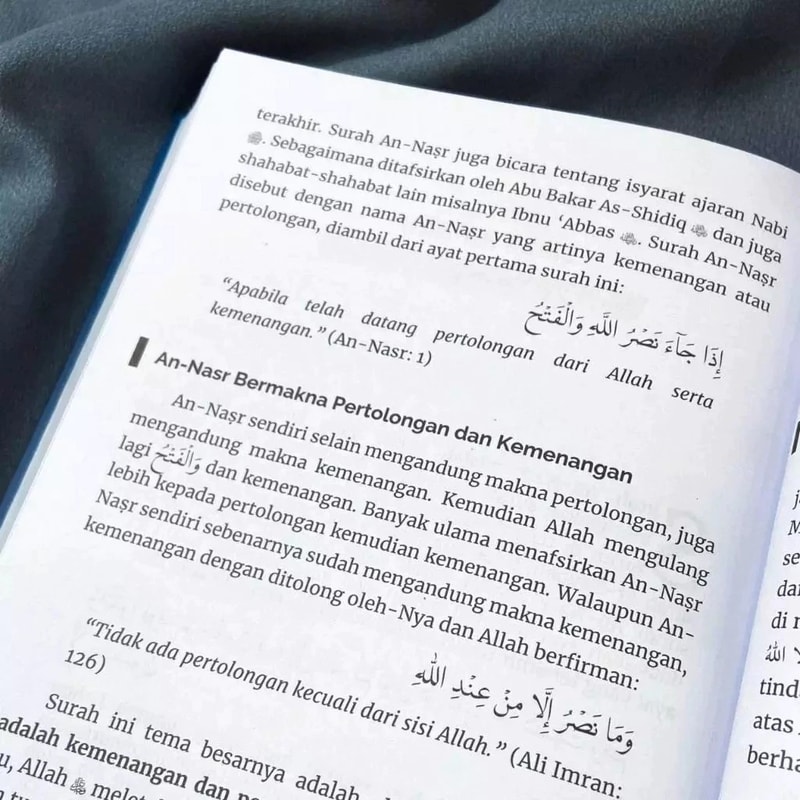 terakhir. Surah An-Naṣr juga bicara tentang isyarat ajaran Nabi
ﷺ. Sebagaimana ditafsirkan oleh Abu Bakar As-Shidiq dan juga
shahabat-shahabat lain misalnya Ibnu ‘Abbas. Surah An-Naṣr
disebut dengan nama An-Naṣr yang artinya kemenangan atau
pertolongan, diambil dari ayat pertama surah ini:
إِذَا جَآءَ نَصْرُ اللَّهِ وَالْفَتْحُ
“Apabila telah datang pertolongan dari Allah serta
kemenangan.” (An-Nasr: 1)
An-Nasr Bermakna Pertolongan dan Kemenangan
An-Naṣr sendiri selain mengandung makna pertolongan, juga
mengandung makna kemenangan. Kemudian Allah mengulang
lagi وَالْفَتْحُ dan kemenangan. Banyak ulama menafsirkan An-Naṣr
lebih kepada pertolongan kemudian kemenangan. Walaupun An-
Naṣr sendiri sebenarnya sudah mengandung makna kemenangan,
kemenangan dengan ditolong oleh-Nya dan Allah berfirman:
وَمَا نَصْرُ إِلَّا مِنْ عِنْدِ اللّٰهِ
“Tidak ada pertolongan kecuali dari sisi Allah.” (Ali Imran:
126)
Surah ini tema besarnya adalah
adalah kemenangan dan
Allah